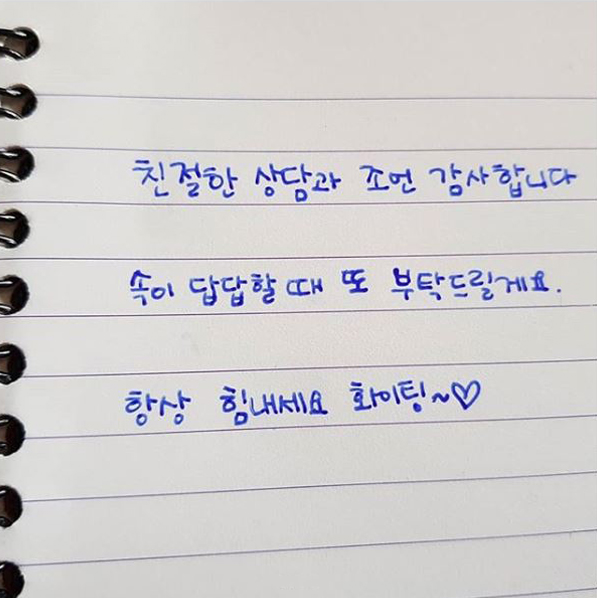 친절한 상담과 조언 감사합니다
속이 답답할 때 또 부탁드릴게요.
항상 힘내세요 화이팅~♡